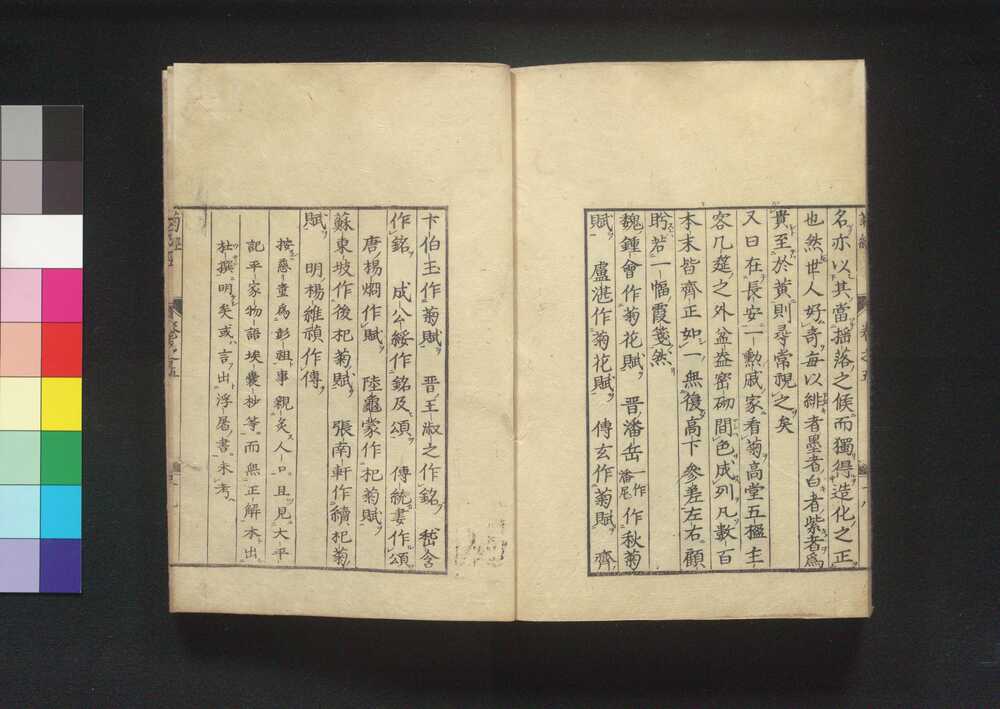 名亦以其當揺落之候而獨得造化之正
也然世人好奇毎以緋者墨者白者紫者爲
貴至於黄則尋常視之矣
又曰在長安一勲戚家看菊高堂五楹主
客几筵之外盆盎密砌間色成列凡數百
本末皆齊正如一無復高下參差左右顧
盻若一幅霞箋然
魏鍾會作菊花賦 晋潘岳一作潘尼作秋菊
賦 盧湛作菊花賦 傅玄作菊賦 齊
卞伯玉作菊賦 晋王淑之作銘 嵆含
作銘 成公綏作銘及頌 傅統妻作頌
唐楊烱作賦 陸龜蒙作杞菊賦
蘇東坡作後杞菊賦 張南軒作續杞菊
賦 明楊維禎作傳
按慈童爲彭祖事親炙人口且見太平
記平家物語埃嚢抄等而無正解本出
杜撰明矣或言出浮屠書未考
菊經 卷之五